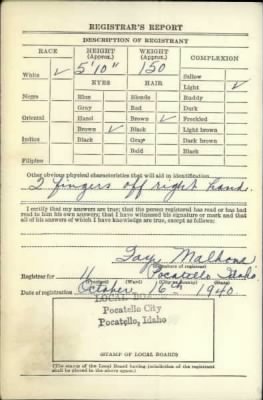 REGISTRAR'S REPORT
DESCRIPTION OF REGISTRANT
RACE HEIGHT (Approx.) WEIGHT (Approx.) COMPLEXION
White ✓ 5'10" 150 Sallow
EYES HAIR Light ✓
Negro Blue Blonde Ruddy
Gray Red Dark
Oriental Hazel Brown ✓ Freckled
Brown ✓ Black Light brown
Indian Black Gray Dark brown
Bald Black
Filipino
Other obvious physical characteristics that will aid in identification
2 fingers off right hand.
I certify that my answers are true; that the person registered has read or has had
read to him his own answers; that I have witnessed his signature or mark and that
all of his answers of which I have knowledge are true, except as follows:
(Signature of registrar)
Registrar for 11 Pocatello Idaho
(Precinct) (Ward) (City or County) (State)
Date of registration October 16th 1940
LOCAL BOARD
Pocatello City
Pocatello, Idaho
(STAMP OF LOCAL BOARD)
(The stamp of the Local Board having jurisdiction of the registrant
shall be placed in the above space.)